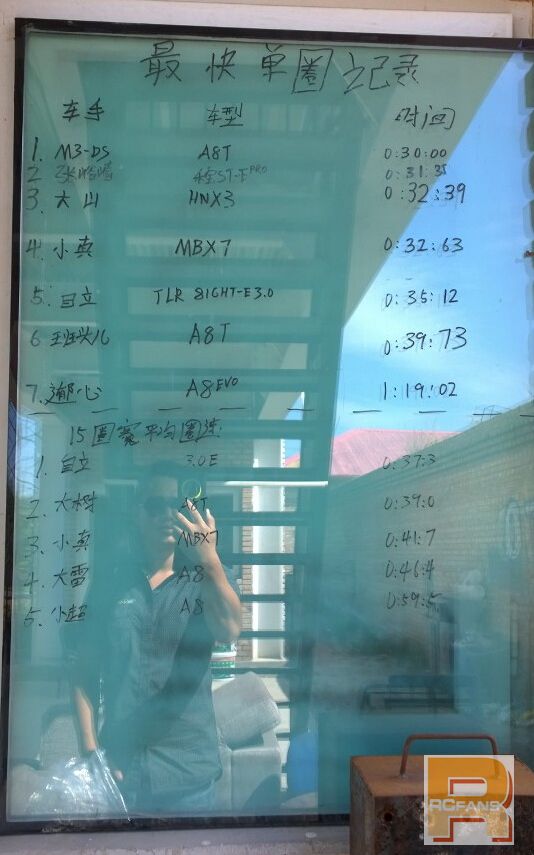 最快单圈记录
车手 车型 时间
1. M3-DS A8T 0:30:00
2 ST-E PRO 0:31:35
3. 大山 HNX3 0:32:39
4. 小真 MBX7 0:32:63
5. 自立 TLR 8IGHT-E3.0 0:35:12
6 班头儿 A8T 0:39:73
7. 心 A8 EVO 1:19:02
15圈赛平均圈速:
1. 自立 3.0E 0:37:3
2. 大树 A8T 0:39:0
3. 小真 MBX7 0:41:7
4. 大雷 A8 0:46:4
5. 小超 A8 0:59:5
RCFANS